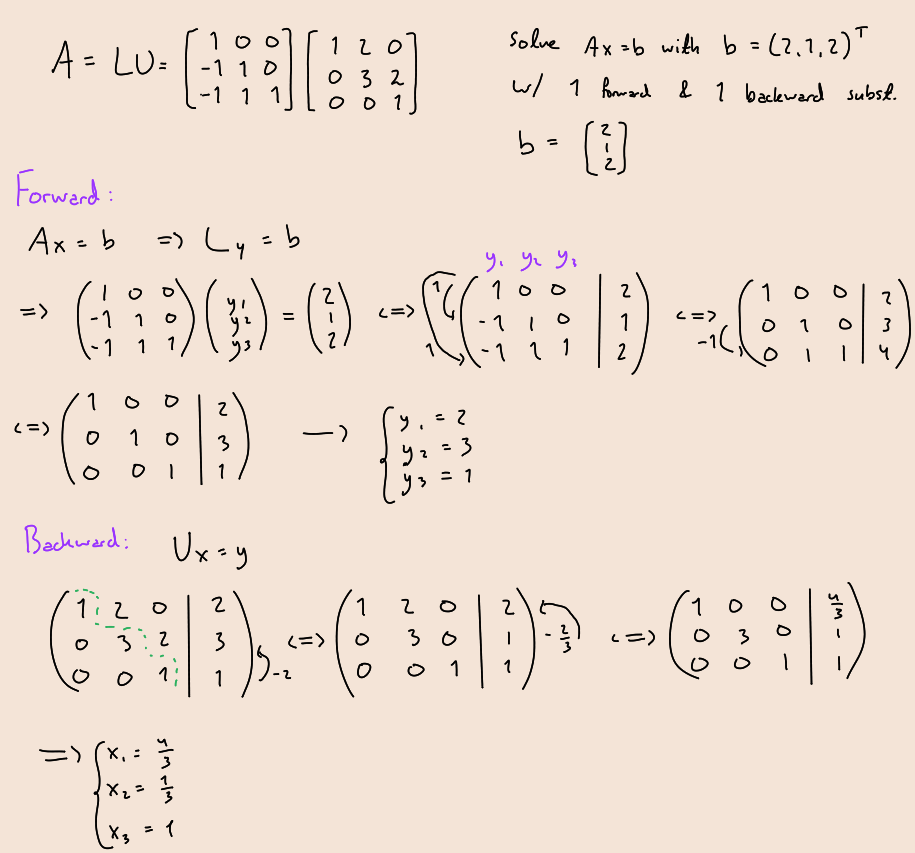 A = LU = [1 0 0; -1 1 0; -1 1 1] [1 2 0; 0 3 2; 0 0 1]
Solve Ax = b with b = (2,1,2)^T
w/ 1 forward & 1 backward subst.
b = [2; 1; 2]
Forward:
Ax = b => Ly = b
y₁ y₂ y₃
=> (1 0 0; -1 1 0; -1 1 1) (y₁; y₂; y₃) = (2; 1; 2) <=> 1 1 (1 0 0 | 2; -1 1 0 | 1; -1 1 1 | 2) <=> -1 (1 0 0 | 2; 0 1 0 | 3; 0 1 1 | 4)
<=> (1 0 0 | 2; 0 1 0 | 3; 0 0 1 | 1) → { y₁ = 2; y₂ = 3; y₃ = 1
Backward: Ux = y
(1 2 0 | 2; 0 3 2 | 3; 0 0 1 | 1) -2 <=> (1 2 0 | 2; 0 3 0 | 1; 0 0 1 | 1) -2/3 <=> (1 0 0 | 4/3; 0 3 0 | 1; 0 0 1 | 1)
=> { x₁ = 4/3; x₂ = 1/3; x₃ = 1